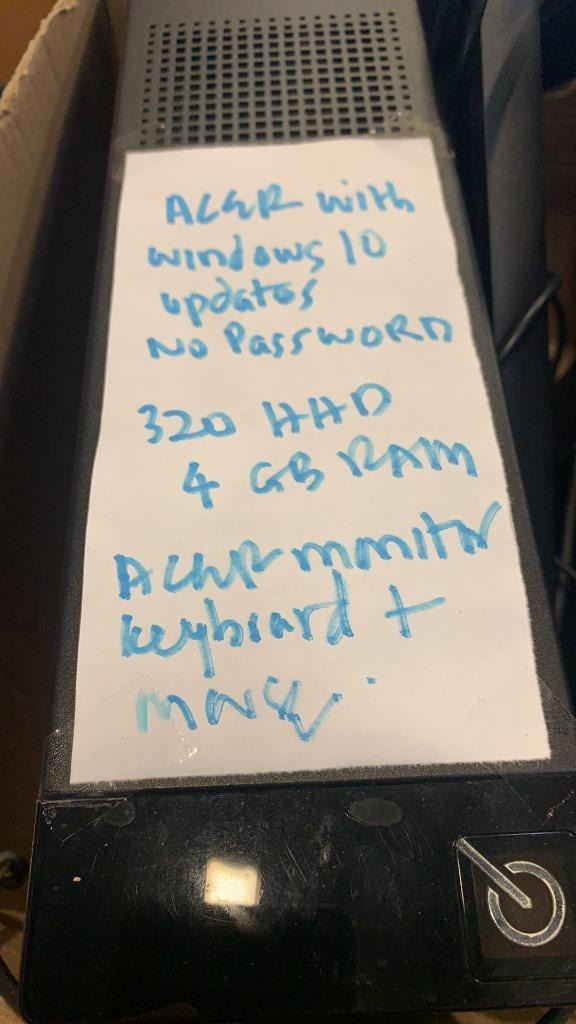 ACER with
windows 10
updates
No PassWORD
320 HHD
4 GB RAM
ACER monitor
keyboard +